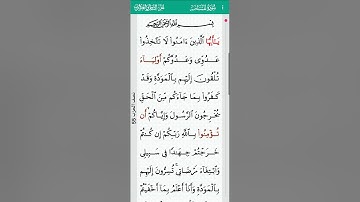 سُورَةُ المُمتَحنَة
بِسْمِ اللَّهِ الرَّحْمَٰنِ الرَّحِيمِ
يَٰٓأَيُّهَا الَّذِينَ ءَامَنُوا لَا تَتَّخِذُوا
عَدُوِّى وَعَدُوَّكُمْ أَوْلِيَآءَ
تُلْقُونَ إِلَيْهِم بِالْمَوَدَّةِ وَقَدْ
كَفَرُوا بِمَا جَآءَكُم مِّنَ الْحَقِّ
يُخْرِجُونَ الرَّسُولَ وَإِيَّاكُمْ أَن
تُؤْمِنُوا بِاللَّهِ رَبِّكُمْ إِن كُنتُمْ
خَرَجْتُمْ جِهَٰدًا فِى سَبِيلِى
وَابْتِغَآءَ مَرْضَاتِى تُسِرُّونَ إِلَيْهِم
بِالْمَوَدَّةِ وَأَنَا أَعْلَمُ بِمَآ أَخْفَيْتُمْ
نصف الحزب 55